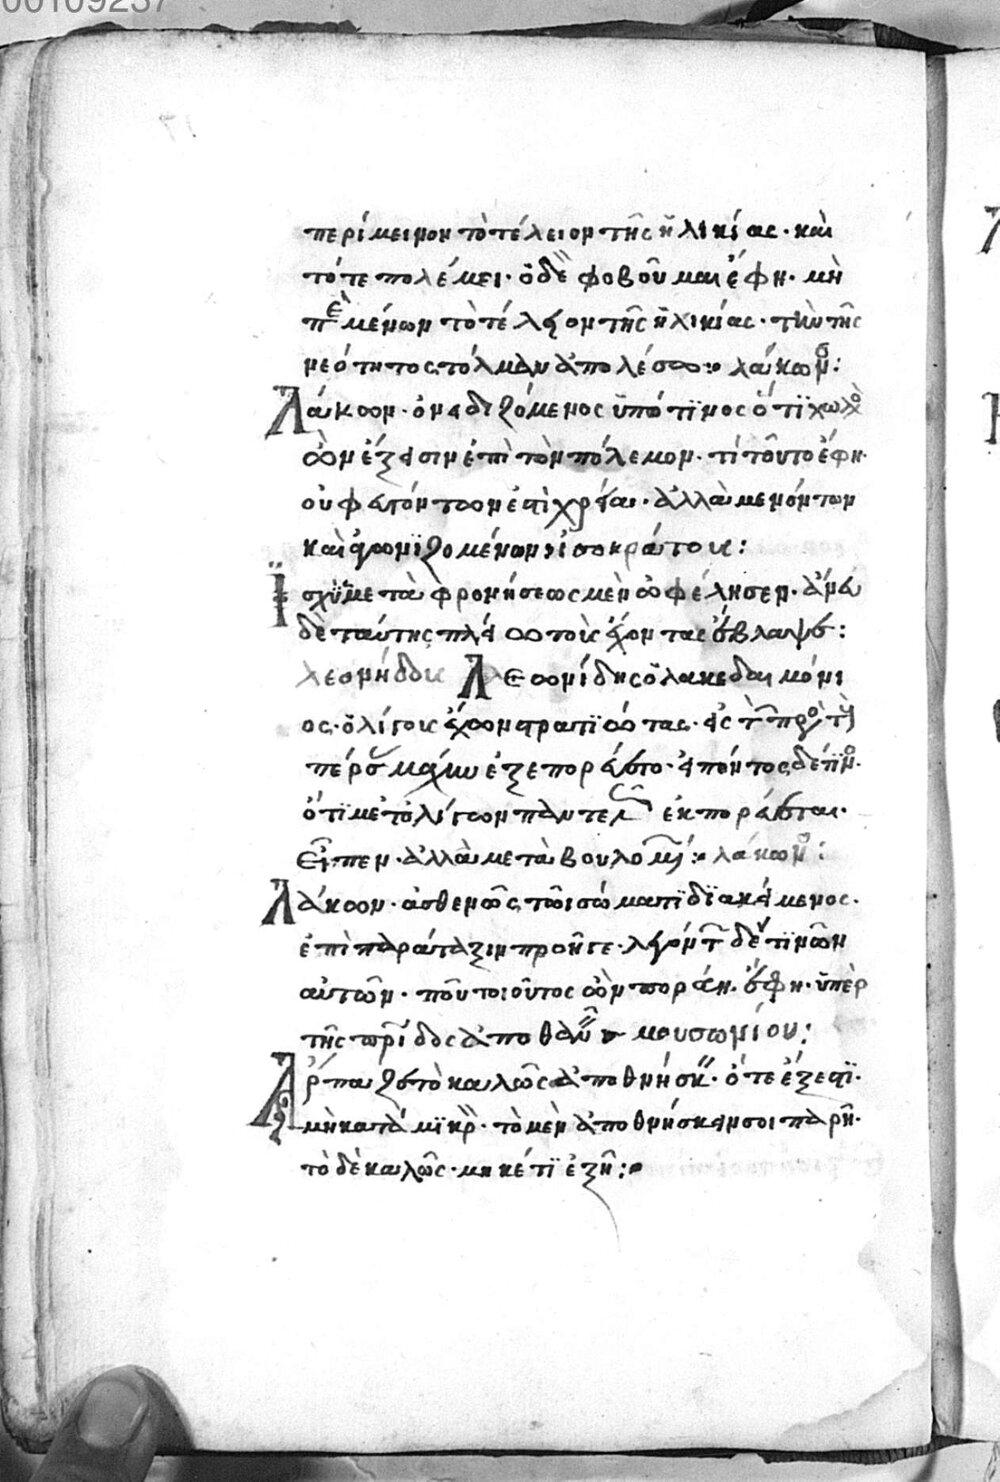 00109237
περίμεινον τὸ τέλειον τῆς ἡλικίας· καὶ
τότε πολέμει· ὁ δὲ φοβοῦμαι ἔφη· μὴ
περιμένων τὸ τέλειον τῆς ἡλικίας· τὴν τῆς
νεότητος τόλμαν ἀπολέσω:· λάκων(ος):
Λάκων· ὀνειδιζόμενος ὑπό τϊνος ὅτϊ χωλὸς
ὢν ἔξεισιν ἐπὶ τὸν πόλεμον· τί τοῦτο ἔφη·
οὐ φευγόντων ἐστὶ χρεία· ἀλλὰ μενόντων
καὶ ἀγωνϊζομένων: ἰσοκράτους:
Ϊσχῢς μετὰ φρονήσεως μὲν ὠφέλησεν· ἄνευ
δὲ ταύτης πλείω τοὺς ἔχοντας ἔβλαψε:
λεονίδου Λεωνίδης ὁ λακεδαιμόνι
ος· ὀλίγους ἔχων στρατϊώτας· εἰς τὴν πρὸς τὴν
πέρσου μάχην ἐξεπορεύετο· εἰπόντος δέ τϊνος·
ὅτϊ μετ' ὀλίγων παντελῶς ἐκπορεύεται·
εἶπεν· ἀλλὰ μετὰ βουλομένων:· λάκων(ος):
Λάκων· ἀσθενῶς τῶι σώματϊ δϊακείμενος·
ἐπὶ παράταξιν προῆγε· λέγοντ(ος) δέ τϊνῶν
αὐτῶν· ποῦ τοιοῦτος ὢν πορεύη· ἔφη· ὑπὲρ
τῆς πατρίδος ἀποθανεῖν μουσωνίου:
Ἅρπαζε τὸ καλῶς ἀποθνήσκειν· ὅτε ἔξεστϊ·
μὴ κατὰ μϊκρὸν· τὸ μὲν ἀποθνήσκειν σοι παρῆ·
τὸ δὲ καλῶς· μηκέτϊ ἐξῆ:·